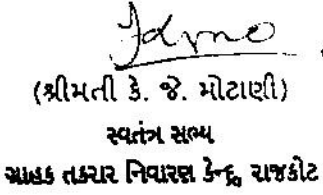 (શ્રીમતી કે. જે. મોટાણી)
સ્વતંત્ર સભ્ય
ગ્રાહક તકરાર નિવારણ કેન્દ્ર, રાજકોટ